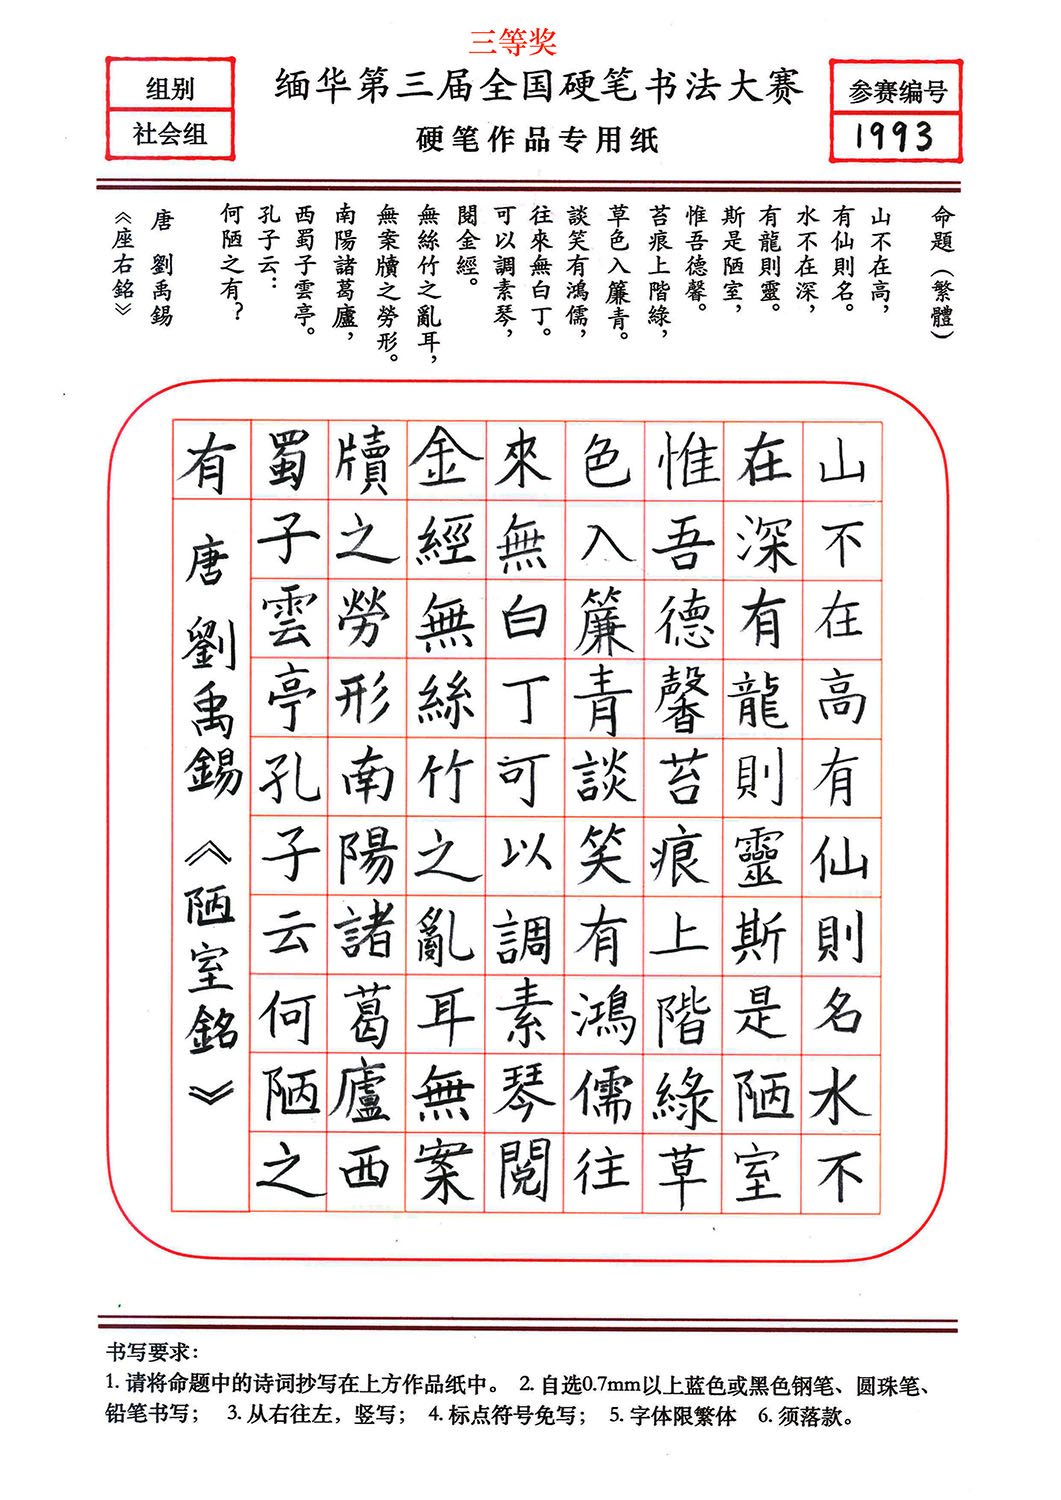 三等奖
组别
社会组
缅华第三届全国硬笔书法大赛
硬笔作品专用纸
参赛编号
1993
命題（繁體）
山不在高，
有仙則名。
水不在深，
有龍則靈。
斯是陋室，
惟吾德馨。
苔痕上階綠，
草色入簾青。
談笑有鴻儒，
往來無白丁。
可以調素琴，
閱金經。
無絲竹之亂耳，
無案牘之勞形。
南陽諸葛廬，
西蜀子雲亭。
孔子云：
何陋之有？
唐 劉禹錫
《座右銘》
山不在高有仙則名水不
在深有龍則靈斯是陋室
惟吾德馨苔痕上階綠草
色入簾青談笑有鴻儒往
來無白丁可以調素琴閱
金經無絲竹之亂耳無案
牘之勞形南陽諸葛廬西
蜀子雲亭孔子云何陋之
有 唐 劉禹錫《陋室銘》
书写要求：
1. 请将命题中的诗词抄写在上方作品纸中。 2. 自选0.7mm以上蓝色或黑色钢笔、圆珠笔、
铅笔书写； 3. 从右往左，竖写； 4. 标点符号免写； 5. 字体限繁体 6. 须落款。